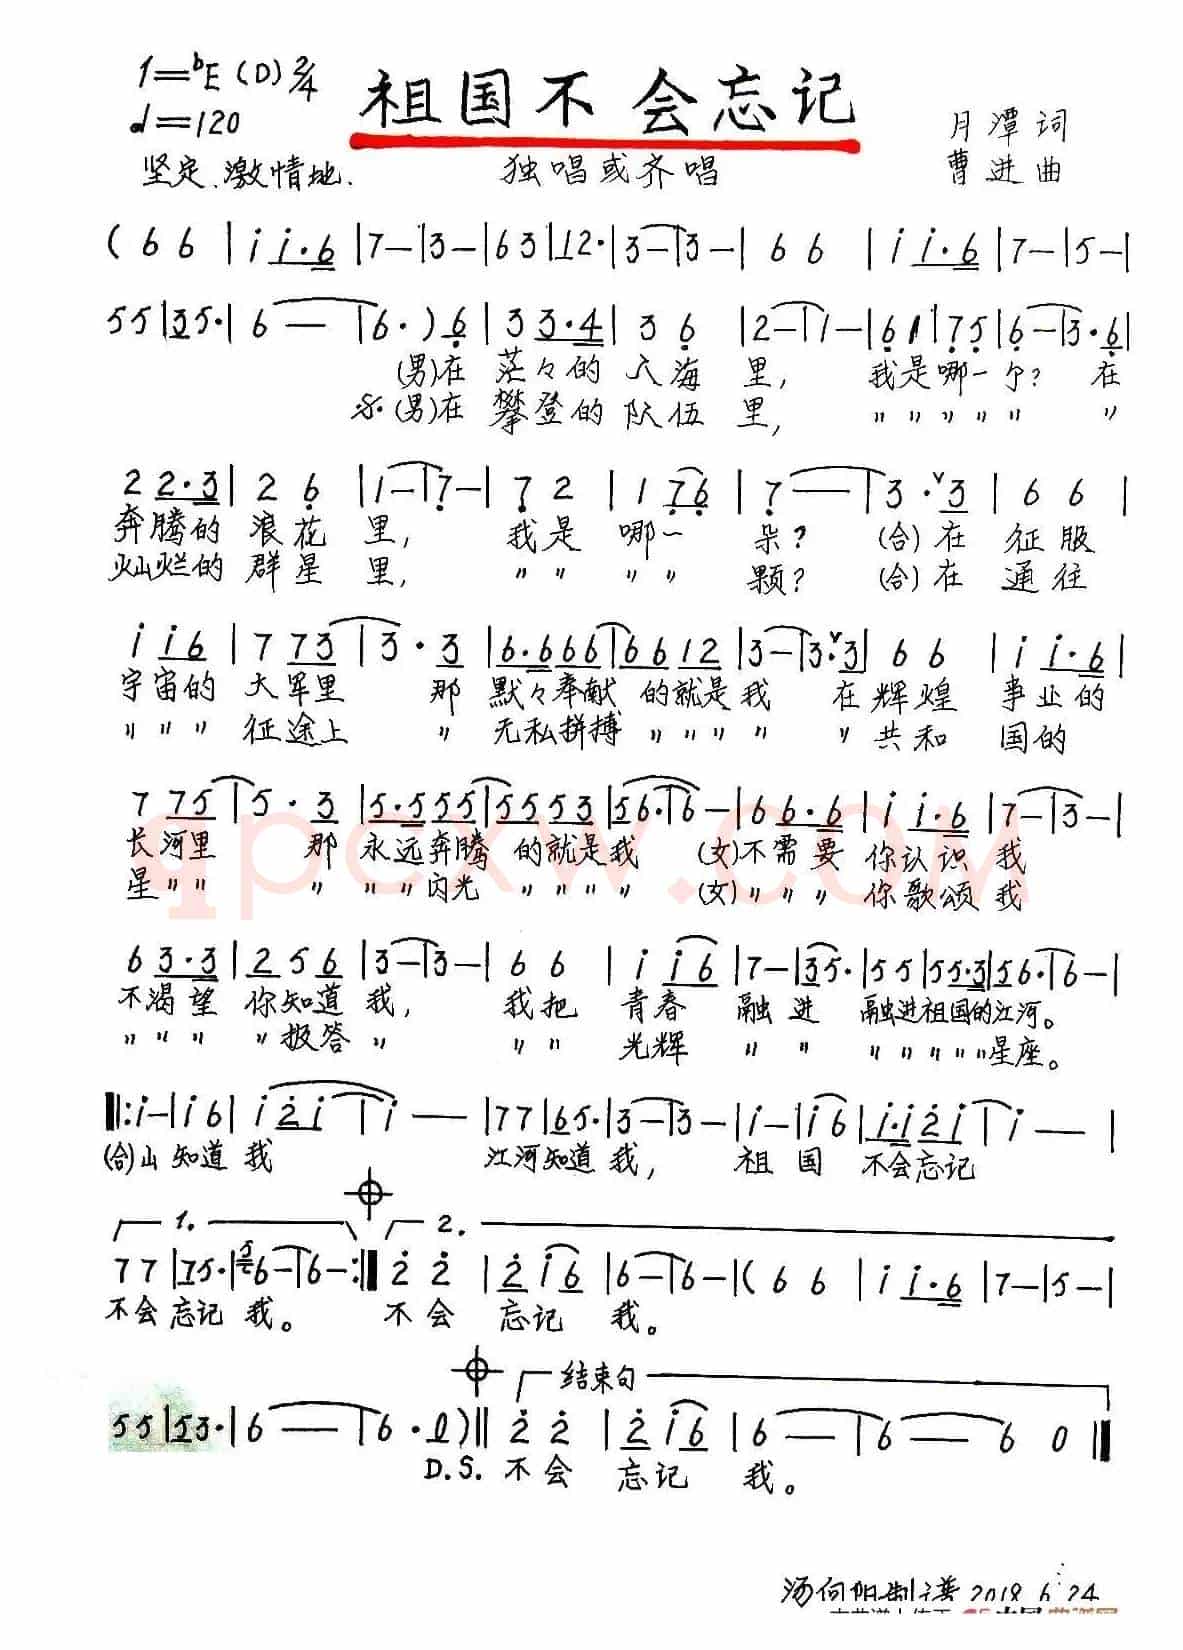 1=♭E (D) 2/4
祖国不会忘记
♩=120
月潭 词
坚定、激情地.
独唱或齐唱
曹进 曲
( 6 6 | i i·6 | 7— | 3— | 6 3 | 12· | 3— | 3— | 6 6 | i i·6 | 7— | 5— |
55 | 35· | 6 — | 6·) 6 | 3 3·4 | 3 6 | 2— | 1— | 6 1 | 7 5 | 6— | 3·6 |
(男)在 茫々的 人海 里, 我是哪一个? 在
(男)在 攀登的 队伍 里, 〃 〃 〃 〃 〃
2 2·3 | 2 6 | 1— | 7— | 7 2 | 1 76 | 7 — | 3·ˇ3 | 6 6 |
奔腾的 浪花 里, 我是 哪一 朵? (合)在 征服
灿烂的 群星 里, 〃 〃 〃 〃 颗? (合)在 通往
i i6 | 7 73 | 3·3 | 6·666 | 6612 | 3— | 3ˇ·3 | 6 6 | i i·6 |
宇宙的 大军里 那 默々奉献 的就是我 在辉煌 事业的
〃 〃 〃 征途上 〃 无私拼搏 〃 〃 〃 〃 〃 共和 国的
7 75 | 5·3 | 5·555 | 5553 | 56· | 6— | 6 6·6 | i i·6 | 7— | 3— |
长河里 那 永远奔腾 的就是我 (女)不需要 你认识 我
星 〃 〃 〃 〃 〃 闪光 〃 〃 〃 〃 (女) 〃 〃 〃 你歌颂 我
6 3·3 | 2 5 6 | 3— | 3— | 6 6 | i i6 | 7— | 35· | 55 | 55·3 | 56· | 6— |
不渴望 你知道 我, 我把 青春 融进 融进祖国的江河。
〃 〃 〃 〃报答 〃 〃 〃 光辉 〃 〃 〃 〃 〃 〃 〃星座。
‖: i— | i6 | i 2i | i — | 77 | 65· | 3— | 3— | i— | i6 | i·i2i | i — |
(合)山 知道 我 江河知道 我, 祖 国 不会忘记
1. 2.
77 | 75· | 56— | 6— :‖ 2 2 | 2 i6 | 6— | 6— | ( 6 6 | i i·6 | 7— | 5— |
不会忘记 我。 不会 忘记 我。
结束句
55 | 53· | 6 — | 6·0) ‖ 2 2 | 2 i6 | 6 — | 6 — | 6 0 ‖
D.S. 不会 忘记 我。
汤向阳制谱2018.6.24
qpcxw.com